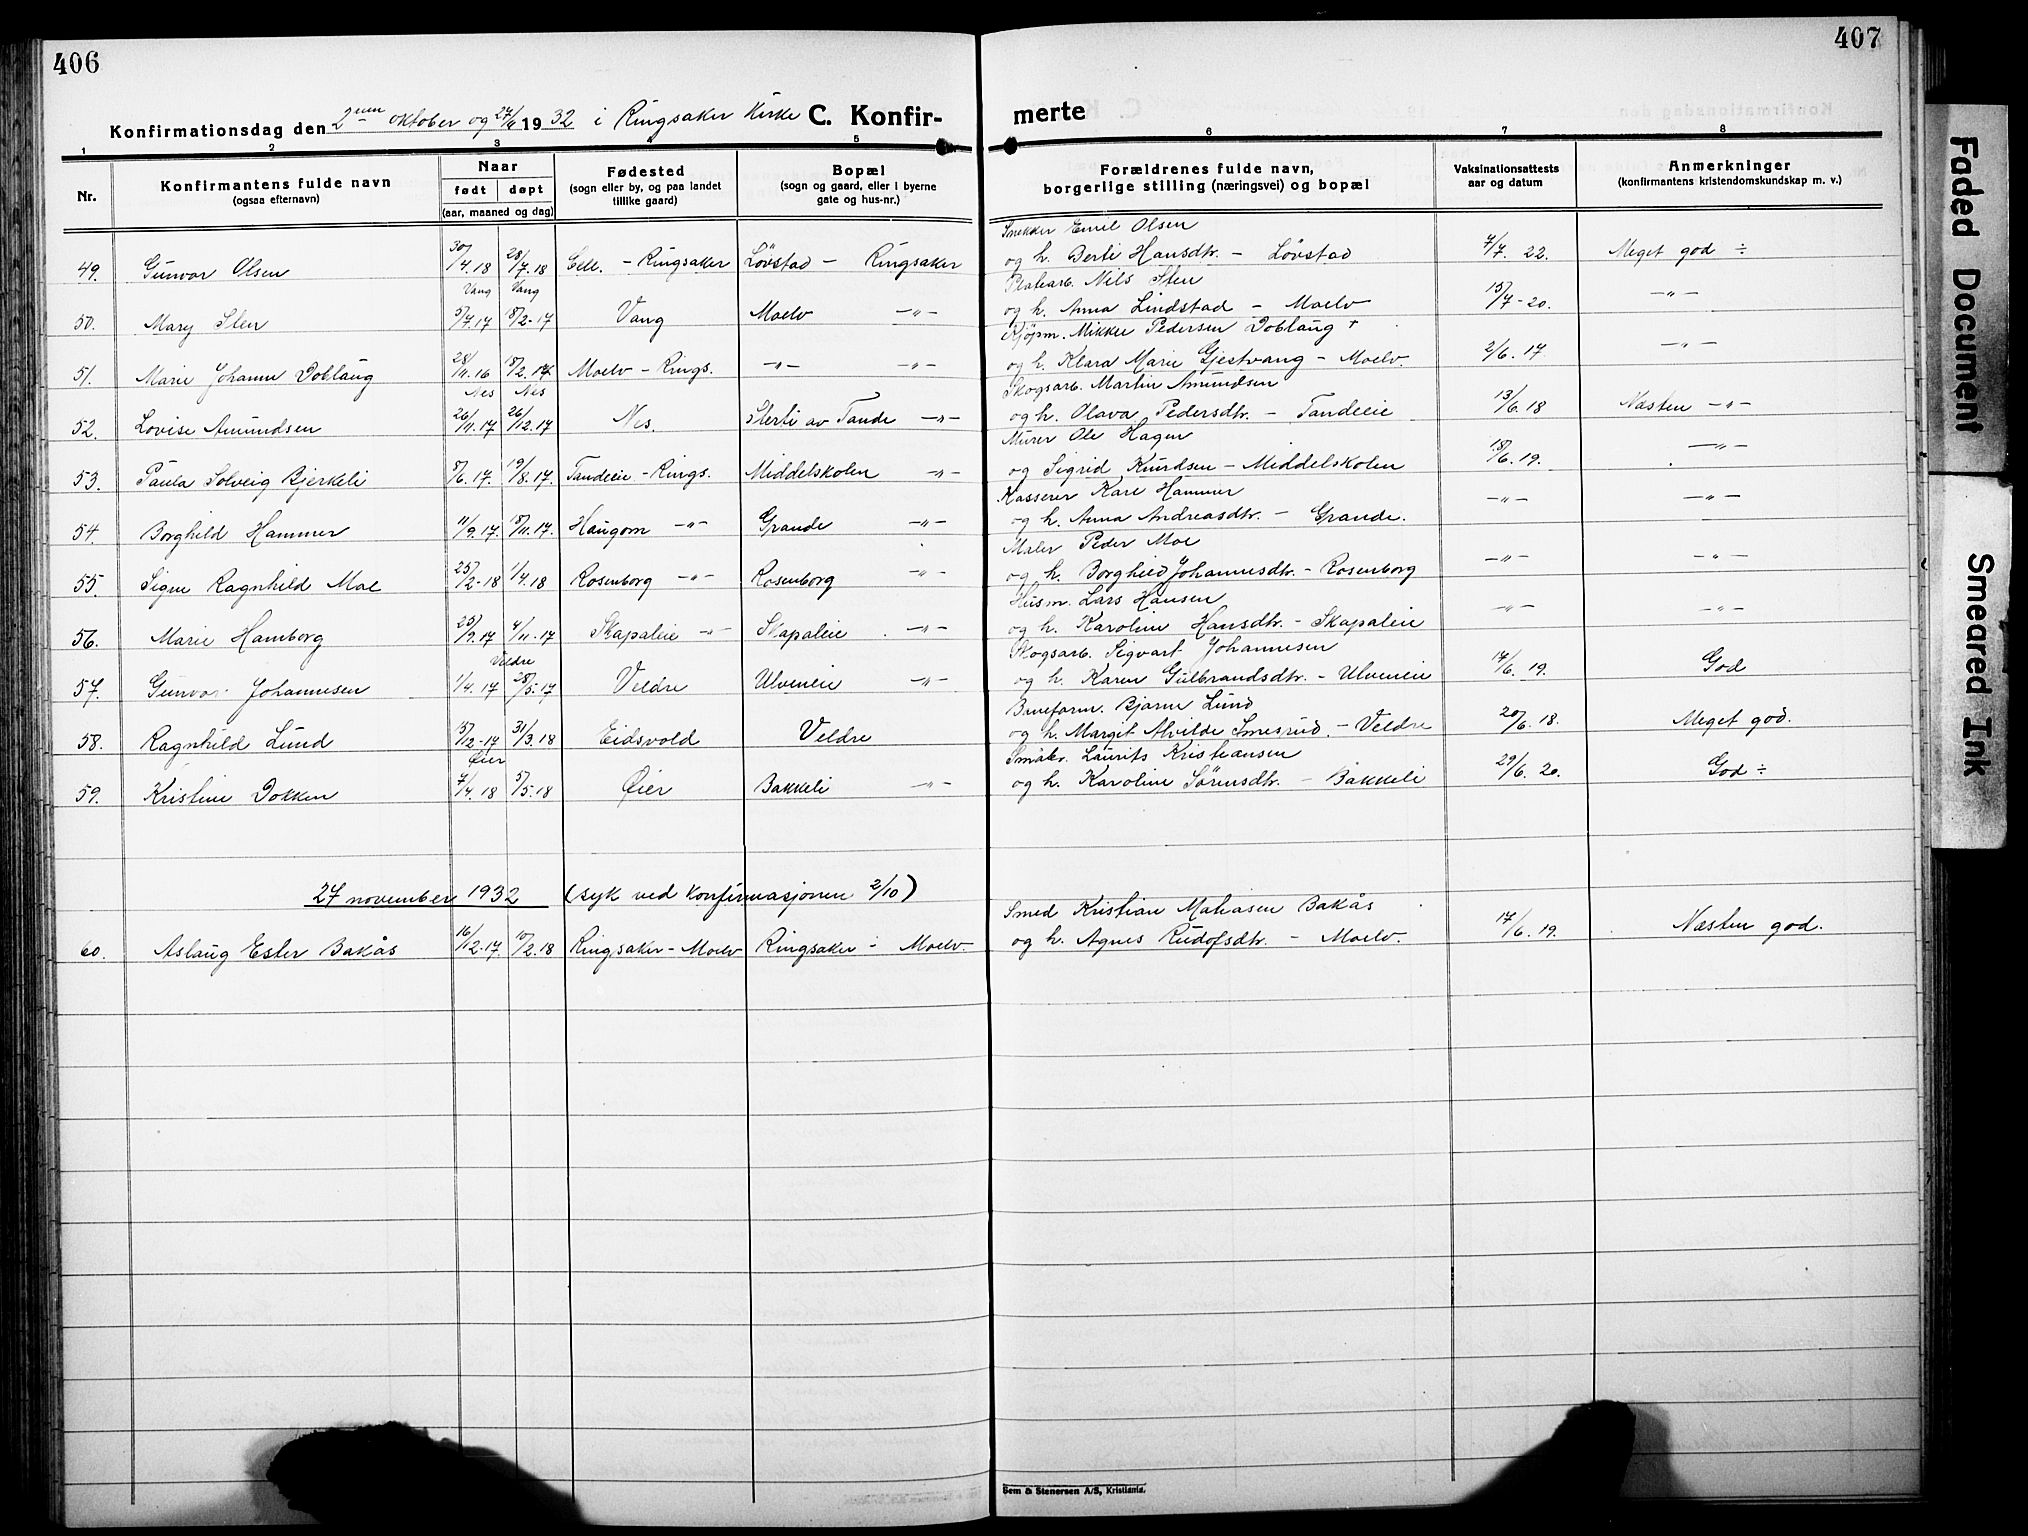 406
407
Konfirmationsdag den 2nen oktober og 19 32 i Ringsaker Kirke C. Konfir- merte
1 2 3 4 5 6 7 8
Nr. Konfirmantens fulde navn (ogsaa efternavn) Naar født døpt (aar, maaned og dag) Fødested (sogn eller by, og paa landet tillike gaard) Bopæl (sogn og gaard, eller i byerne gate og hus-nr.) Forældrenes fulde navn, borgerlige stilling (næringsvei) og bopæl Vaksinationsattests aar og datum Anmerkninger (konfirmantens kristendomskundskap m. v.)
Snekker Emil Olsen
49. Gunvor Olsen 30/4.18 28/7.18 - Ringsaker Løvstad - Ringsaker og h. Berte Hansdtr. - Løvstad 7/7. 22. Meget god ÷
Vang Vang Nils Sten
50. Mary Sten 5/7.17 18/2-17 Vang Moelv -"- og h. Anna Lindstad - Moelv 15/7-20. -"-
Kjøpm. Mikkel Pedersen Doblaug +
51. Marie Johanne Doblaug 28/11.16 18/2.17 Moelv - Rings. -"- -"- og h. Klara Marie Gjestvang - Moelv. 2/6.17 -"-
Nes Nes Skogsarb. Martin Amundsen
52. Lovise Amundsen 26/11.17 26/12.17 Nes. Sterti av Tande -"- og h. Olava Pedersdtr. - Tandeeie 13/6.18 Næsten -"-
Murer Ole Hagen
53. Paula Solveig Bjerkeli 8/6.17. 19/8.17. Tandeeie - Rings. Middelskolen -"- og Sigrid Knudsen - Middelskolen 18/6.19. -"-
Kasserer Kare Hammer
54. Borghild Hammer 11/9.17. 18/11.17. Haugom -"- Grande -"- og h. Anna Andreasdtr. - Grande. -"- -"-
Maler Peder Moe
55. Signe Ragnhild Moe 25/2-18 1/4.18 Rosenborg -"- Rosenborg -"- og h. Borghild Johannesdtr. - Rosenborg -"- -"-
Husm. Lars Hansen
56. Marie Hamborg 25/9.17 4/11-17 Skapaleie -"- Skapaleie -"- og h. Karoline Hansdtr. - Skapaleie -"- -"-
Veldre Skogsarb. Sigvart Johannesen
57. Gunvor Johannesen 1/4.17 28/5.17 Veldre Ulveneie -"- og h. Karen Gulbrandsdtr. - Ulveneie 14/6.19. God
Baneform. Bjarne Lund
58. Ragnhild Lund 15/12-17 31/3.18 Eidsvold Veldre og h. Margit Alvilde Smesrud. - Veldre 20/6.18. Meget god.
Øier Småbr. Laurits Kristiansen
59. Kristine Dokken 7/4.18 5/5.18 Øier Bakkeli -"- og h. Karoline Sørensdtr. - Bakkeli 29/6.20. God ÷
27 november 1932 (syk ved konfirmasjonen 2/10)
Smed Kristian Matiasen Bakås
60. Aslaug Ester Bakås 16/12-17. 10/2.18 Ringsaker - Moelv Ringsaker - Moelv. og h. Agnes Rudofsdtr. - Moelv. 17/6.19. Næsten god.
Sem & Stenersen A/S, Kristiania.
Faded Document
Smeared Ink